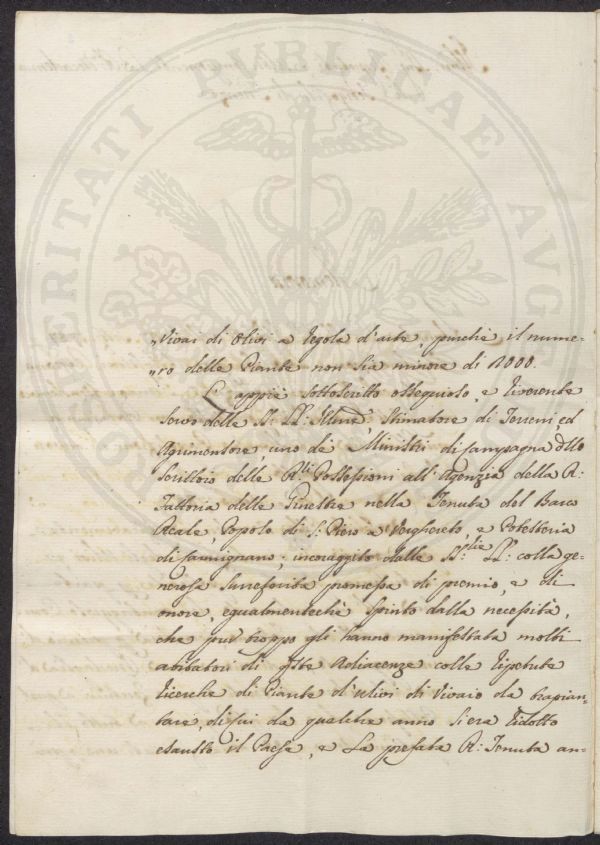 PROSPERITATI PUBLICAE AUGE
„Vivai di Olivi a regola d'arte, purchè il nume-
„ro delle Piante non sia minore di 1000.
L'appiè sottoscritto ossequioso, e riverente
servo delle SS: LL: Illme, Stimatore di Terreni ed
Agrimensore, uno de Ministri di Campagna dello
Scrittoio delle Rli Possessioni all'Agenzia della R:
Fattoria delle Ginestre nella Tenuta del Barco
Reale, Popolo di S: Piero a Verghereto, e Potesteria
di Carmignano; incoraggito dalle SS: LL: colla ge-
nerosa surriferita promessa di premio, e di
onore, egualmentechè spinto dalla necessità,
che pur troppo gli hanno manifestata molti
abitatori di qste Adiacenze colle ripetute
ricerche di Piante d'ulivi di Vivaio da trapian-
tare, di cui da qualche anno si era ridotto
esausto il Paese, e La prefata R: Tenuta an-